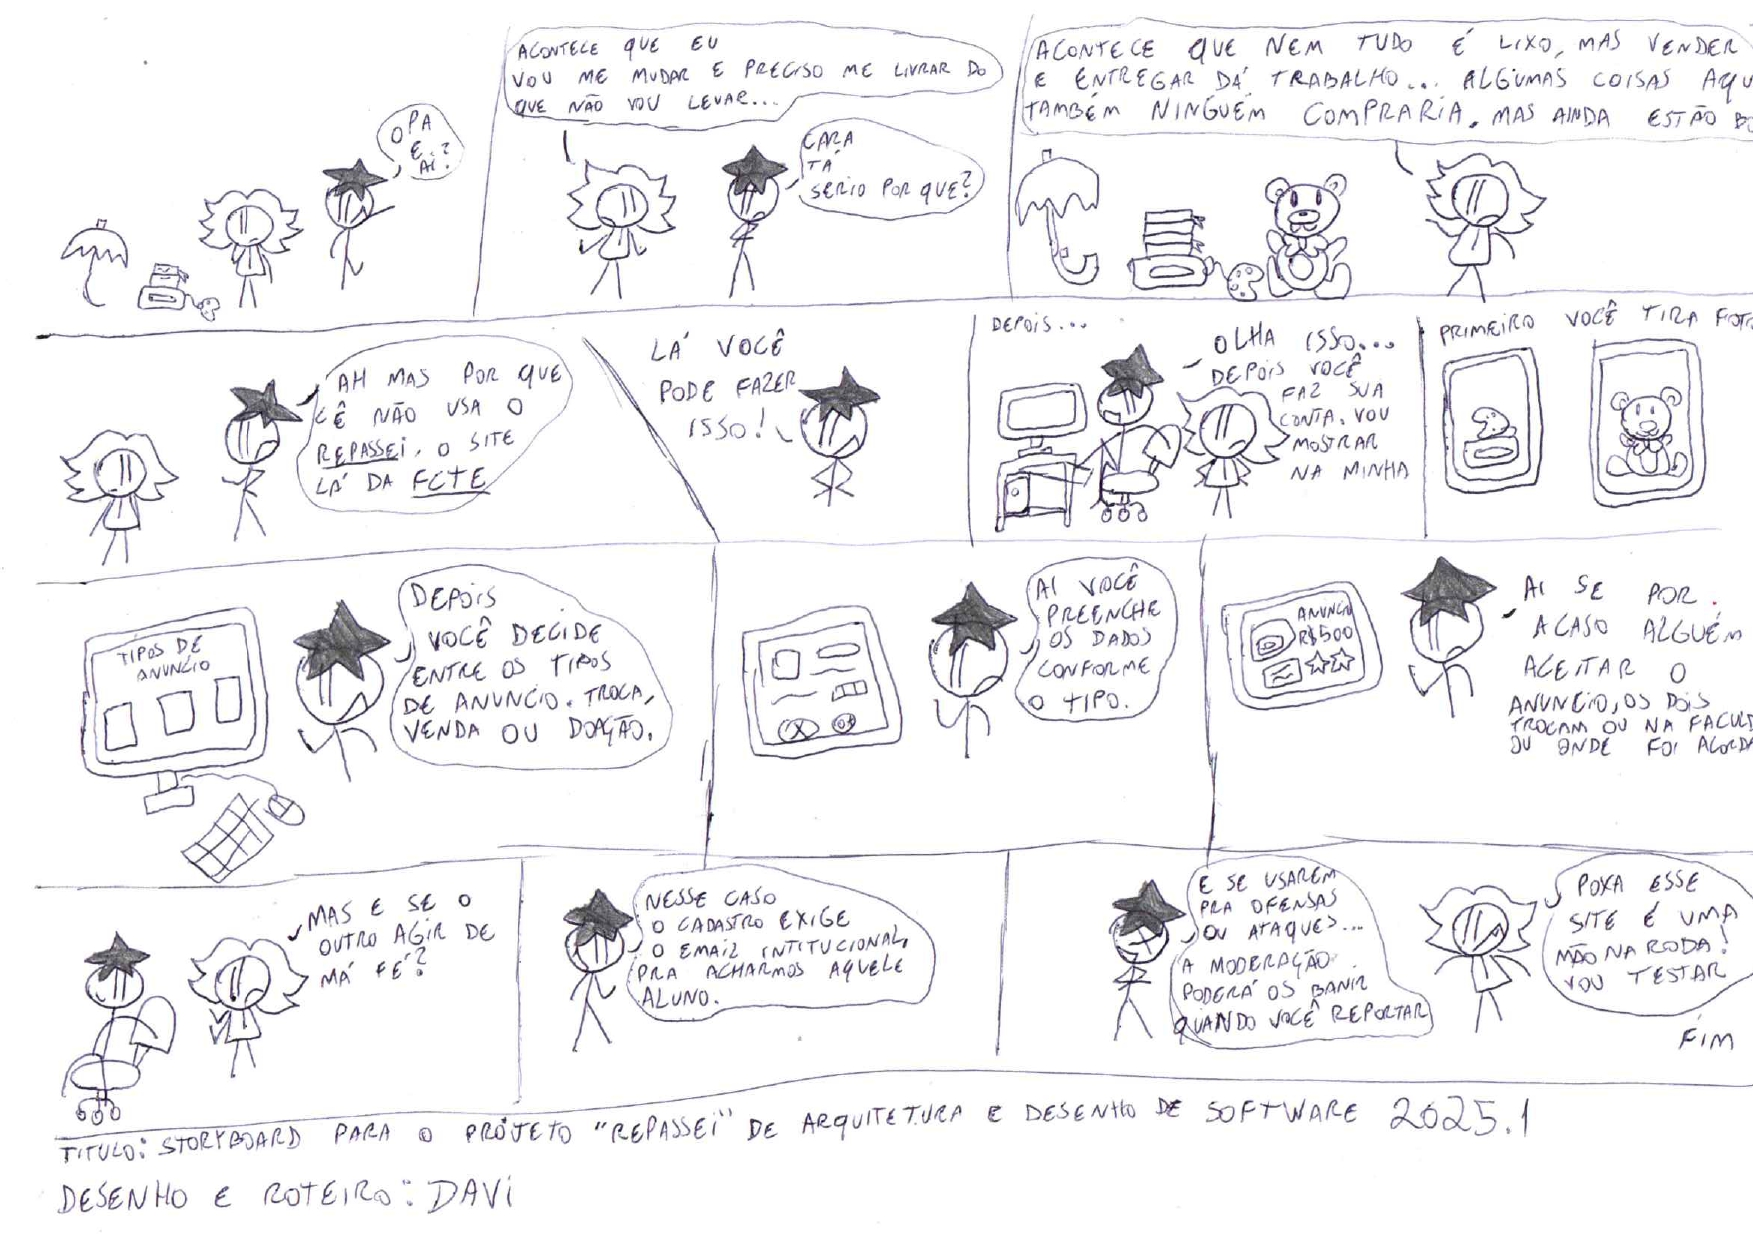 OPA
E
AÍ?
ACONTECE QUE EU
VOU ME MUDAR E PRECISO ME LIVRAR DO
QUE NÃO VOU LEVAR...
CARA
TÁ
SERIO POR QUE?
ACONTECE QUE NEM TUDO É LIXO, MAS VENDER
E ENTREGAR DÁ TRABALHO... ALGUMAS COISAS AQU
TAMBÉM NINGUÉM COMPRARIA. MAS AINDA ESTÃO BO
AH MAS POR QUE
CÊ NÃO USA O
REPASSEI. O SITE
LÁ DA FCTE
LÁ VOCÊ
PODE FAZER
ISSO!
DEPOIS...
OLHA ISSO...
DEPOIS VOCÊ
FAZ SUA
CONTA. VOU
MOSTRAR
NA MINHA
PRIMEIRO VOCÊ TIRA FOTO
TIPOS DE
ANUNCIO
DEPOIS
VOCÊ DECIDE
ENTRE OS TIPOS
DE ANUNCIO. TROCA,
VENDA OU DOAÇÃO.
AI VOCÊ
PREENCHE
OS DADOS
CONFORME
O TIPO.
ANUNCIO
R$500
AI SE POR
ACASO ALGUÉM
ACEITAR O
ANUNCIO, OS DOIS
TROCAM OU NA FACULD
OU ONDE FOI ACORDA
MAS E SE O
OUTRO AGIR DE
MÁ FÉ?
NESSE CASO
O CADASTRO EXIGE
O EMAIL INTITUCIONAL,
PRA ACHARMOS AQUELE
ALUNO.
E SE USAREM
PRA OFENSAS
OU ATAQUES...
A MODERAÇÃO
PODERÁ OS BANIR
QUANDO VOCÊ REPORTAR
POXA ESSE
SITE É UMA
MÃO NA RODA!
VOU TESTAR
FIM
TITULO: STORYBOARD PARA O PROJETO "REPASSEI" DE ARQUITETURA E DESENHO DE SOFTWARE 2025.1
DESENHO E ROTEIRO: DAVI